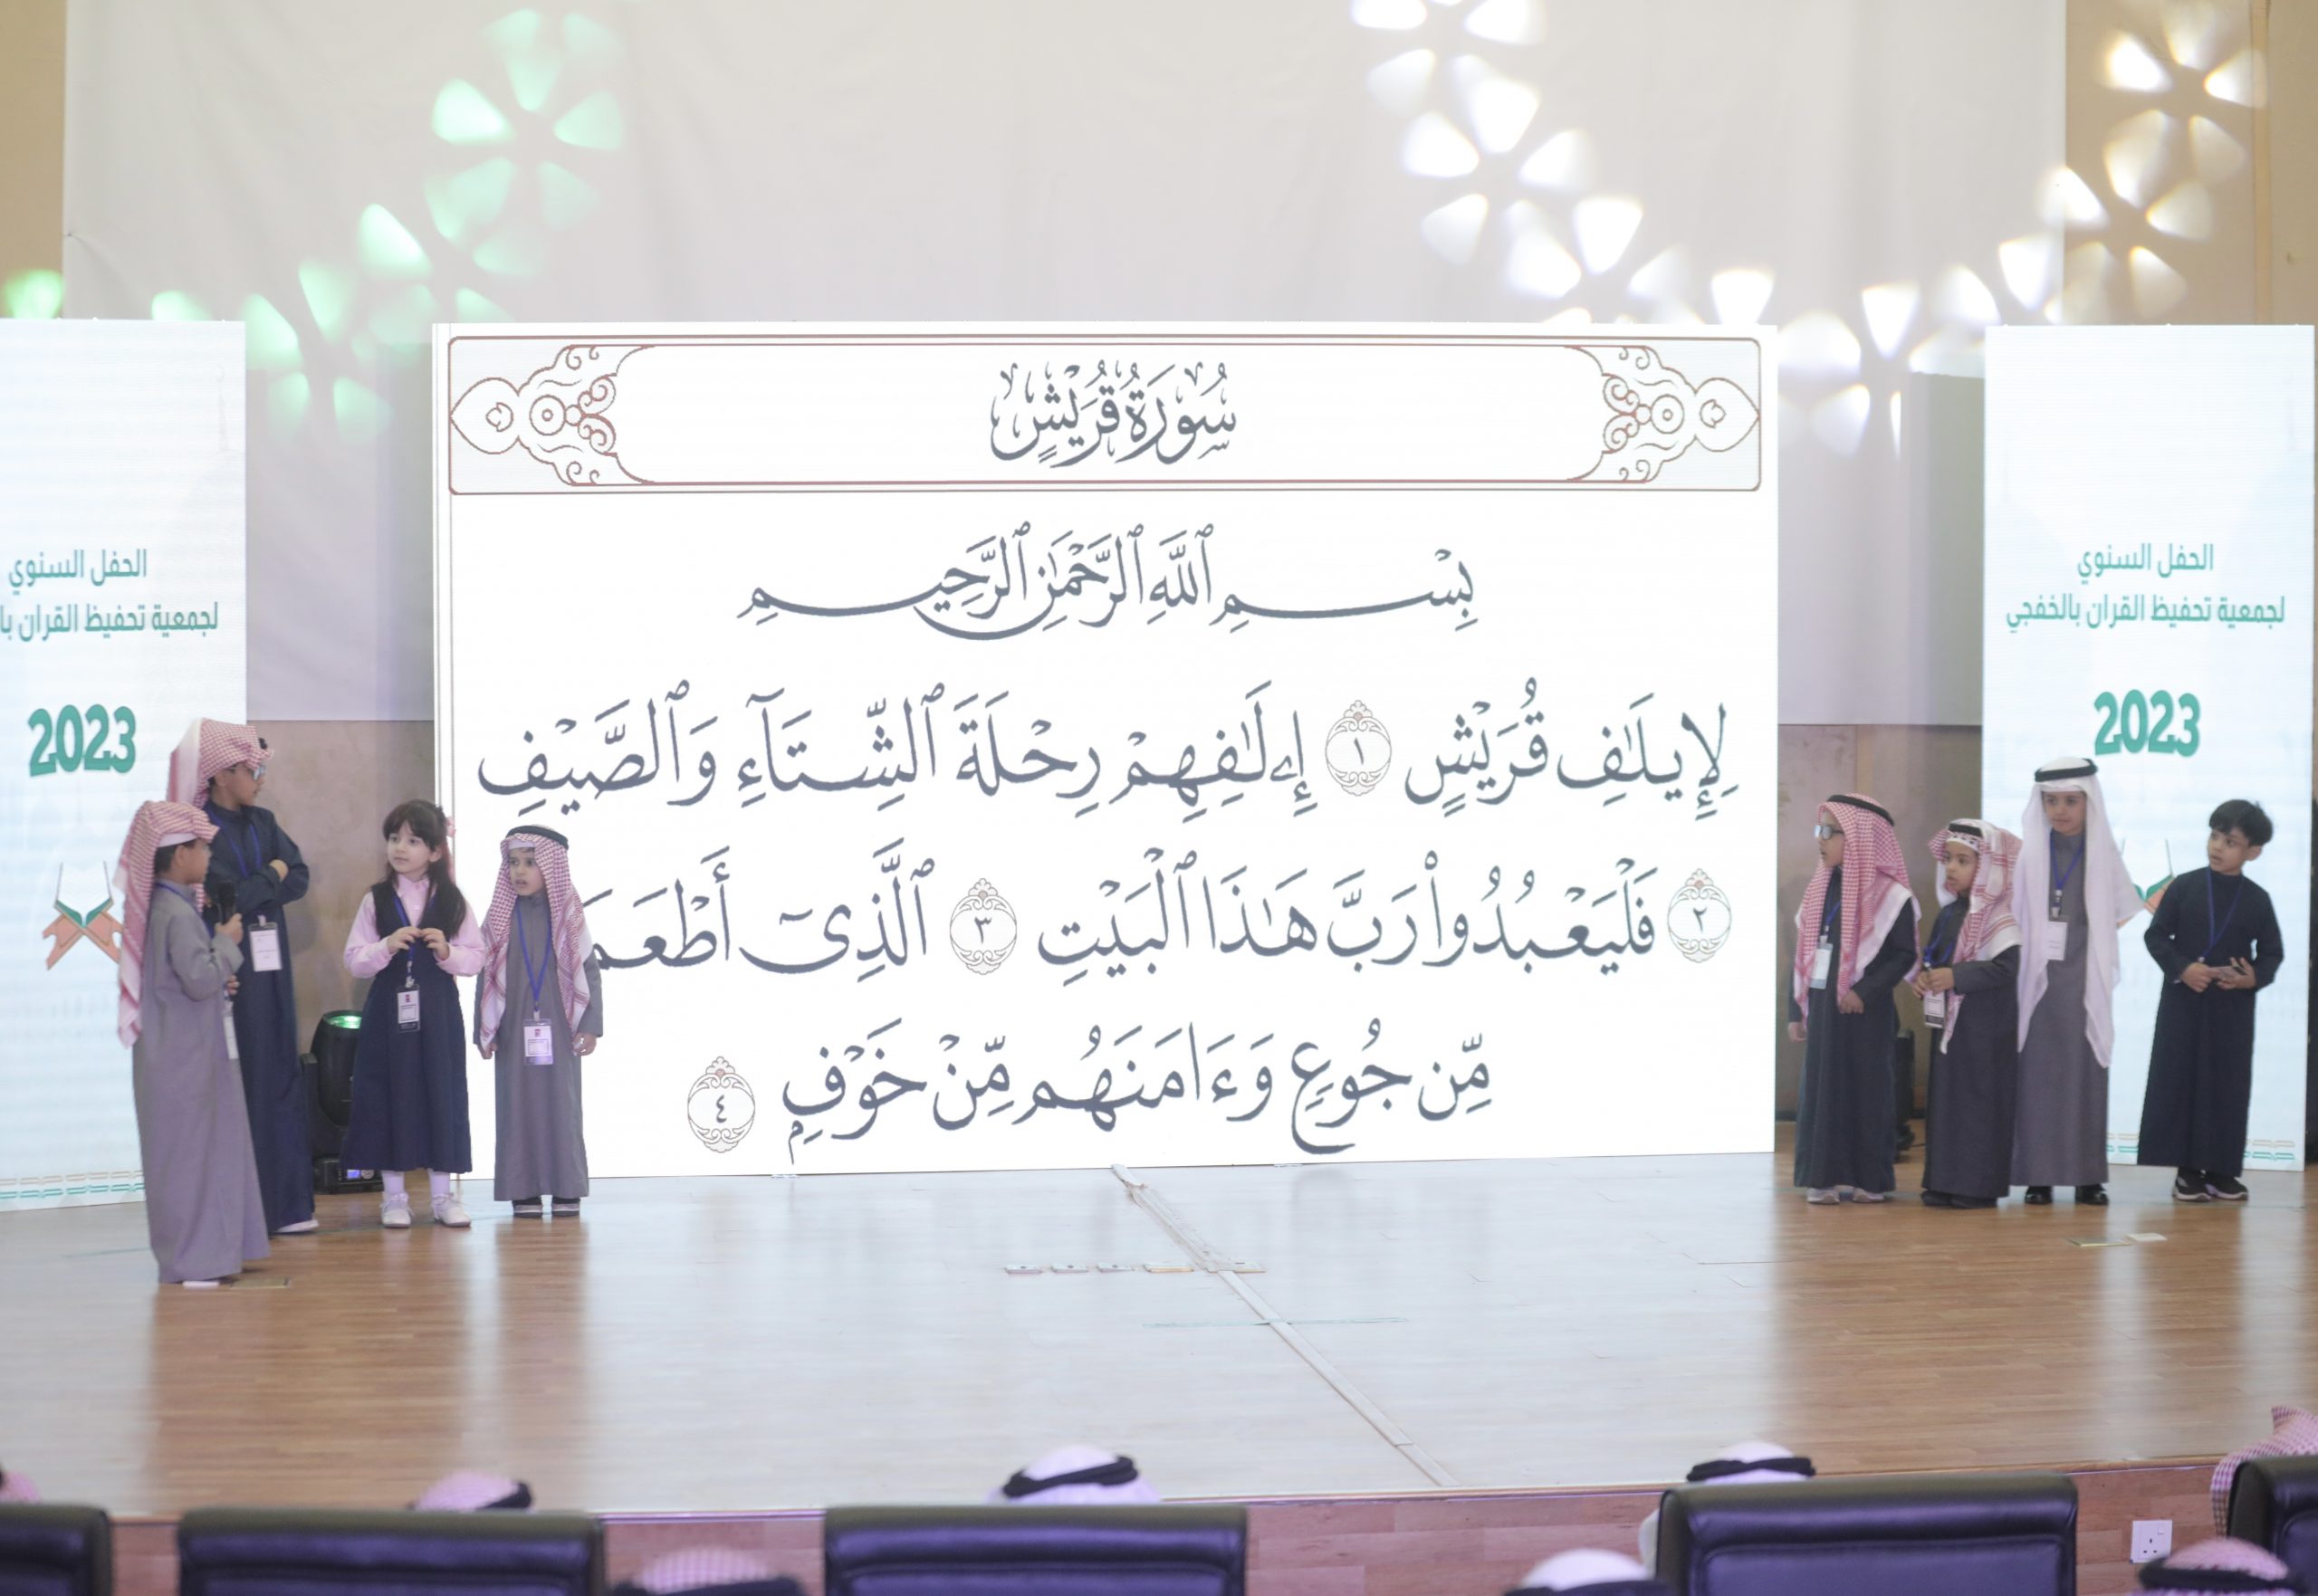 سُورَةُ قُرَيْشٍ
بِسْمِ ٱللَّهِ ٱلرَّحْمَٰنِ ٱلرَّحِيمِ
لِإِيلَٰفِ قُرَيْشٍ ١ إِۦلَٰفِهِمْ رِحْلَةَ ٱلشِّتَآءِ وَٱلصَّيْفِ
٢ فَلْيَعْبُدُوا۟ رَبَّ هَٰذَا ٱلْبَيْتِ ٣ ٱلَّذِىٓ أَطْعَمَ
مِّن جُوعٍ وَءَامَنَهُم مِّنْ خَوْفٍۭ ٤
الحفل السنوي
لجمعية تحفيظ القران بالخفجي
2023
الحفل السنوي
لجمعية تحفيظ القران با
2023